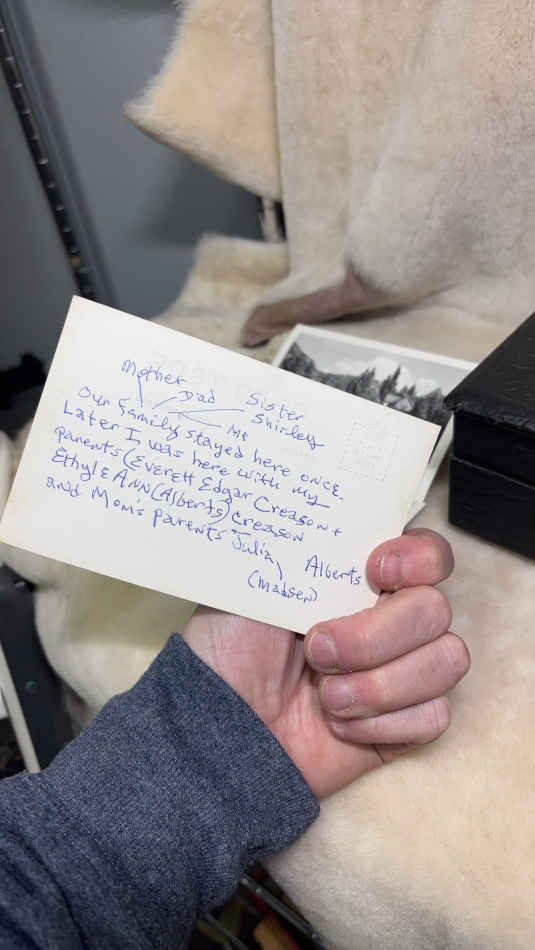 Mother
Dad
Sister
Shirley
Me
Our family stayed here once.
Later I was here with my
parents (Everett Edgar Creason +
Ethyle Ann (Alberts) Creason
and Mom's parents Julia Alberts
(Madsen)